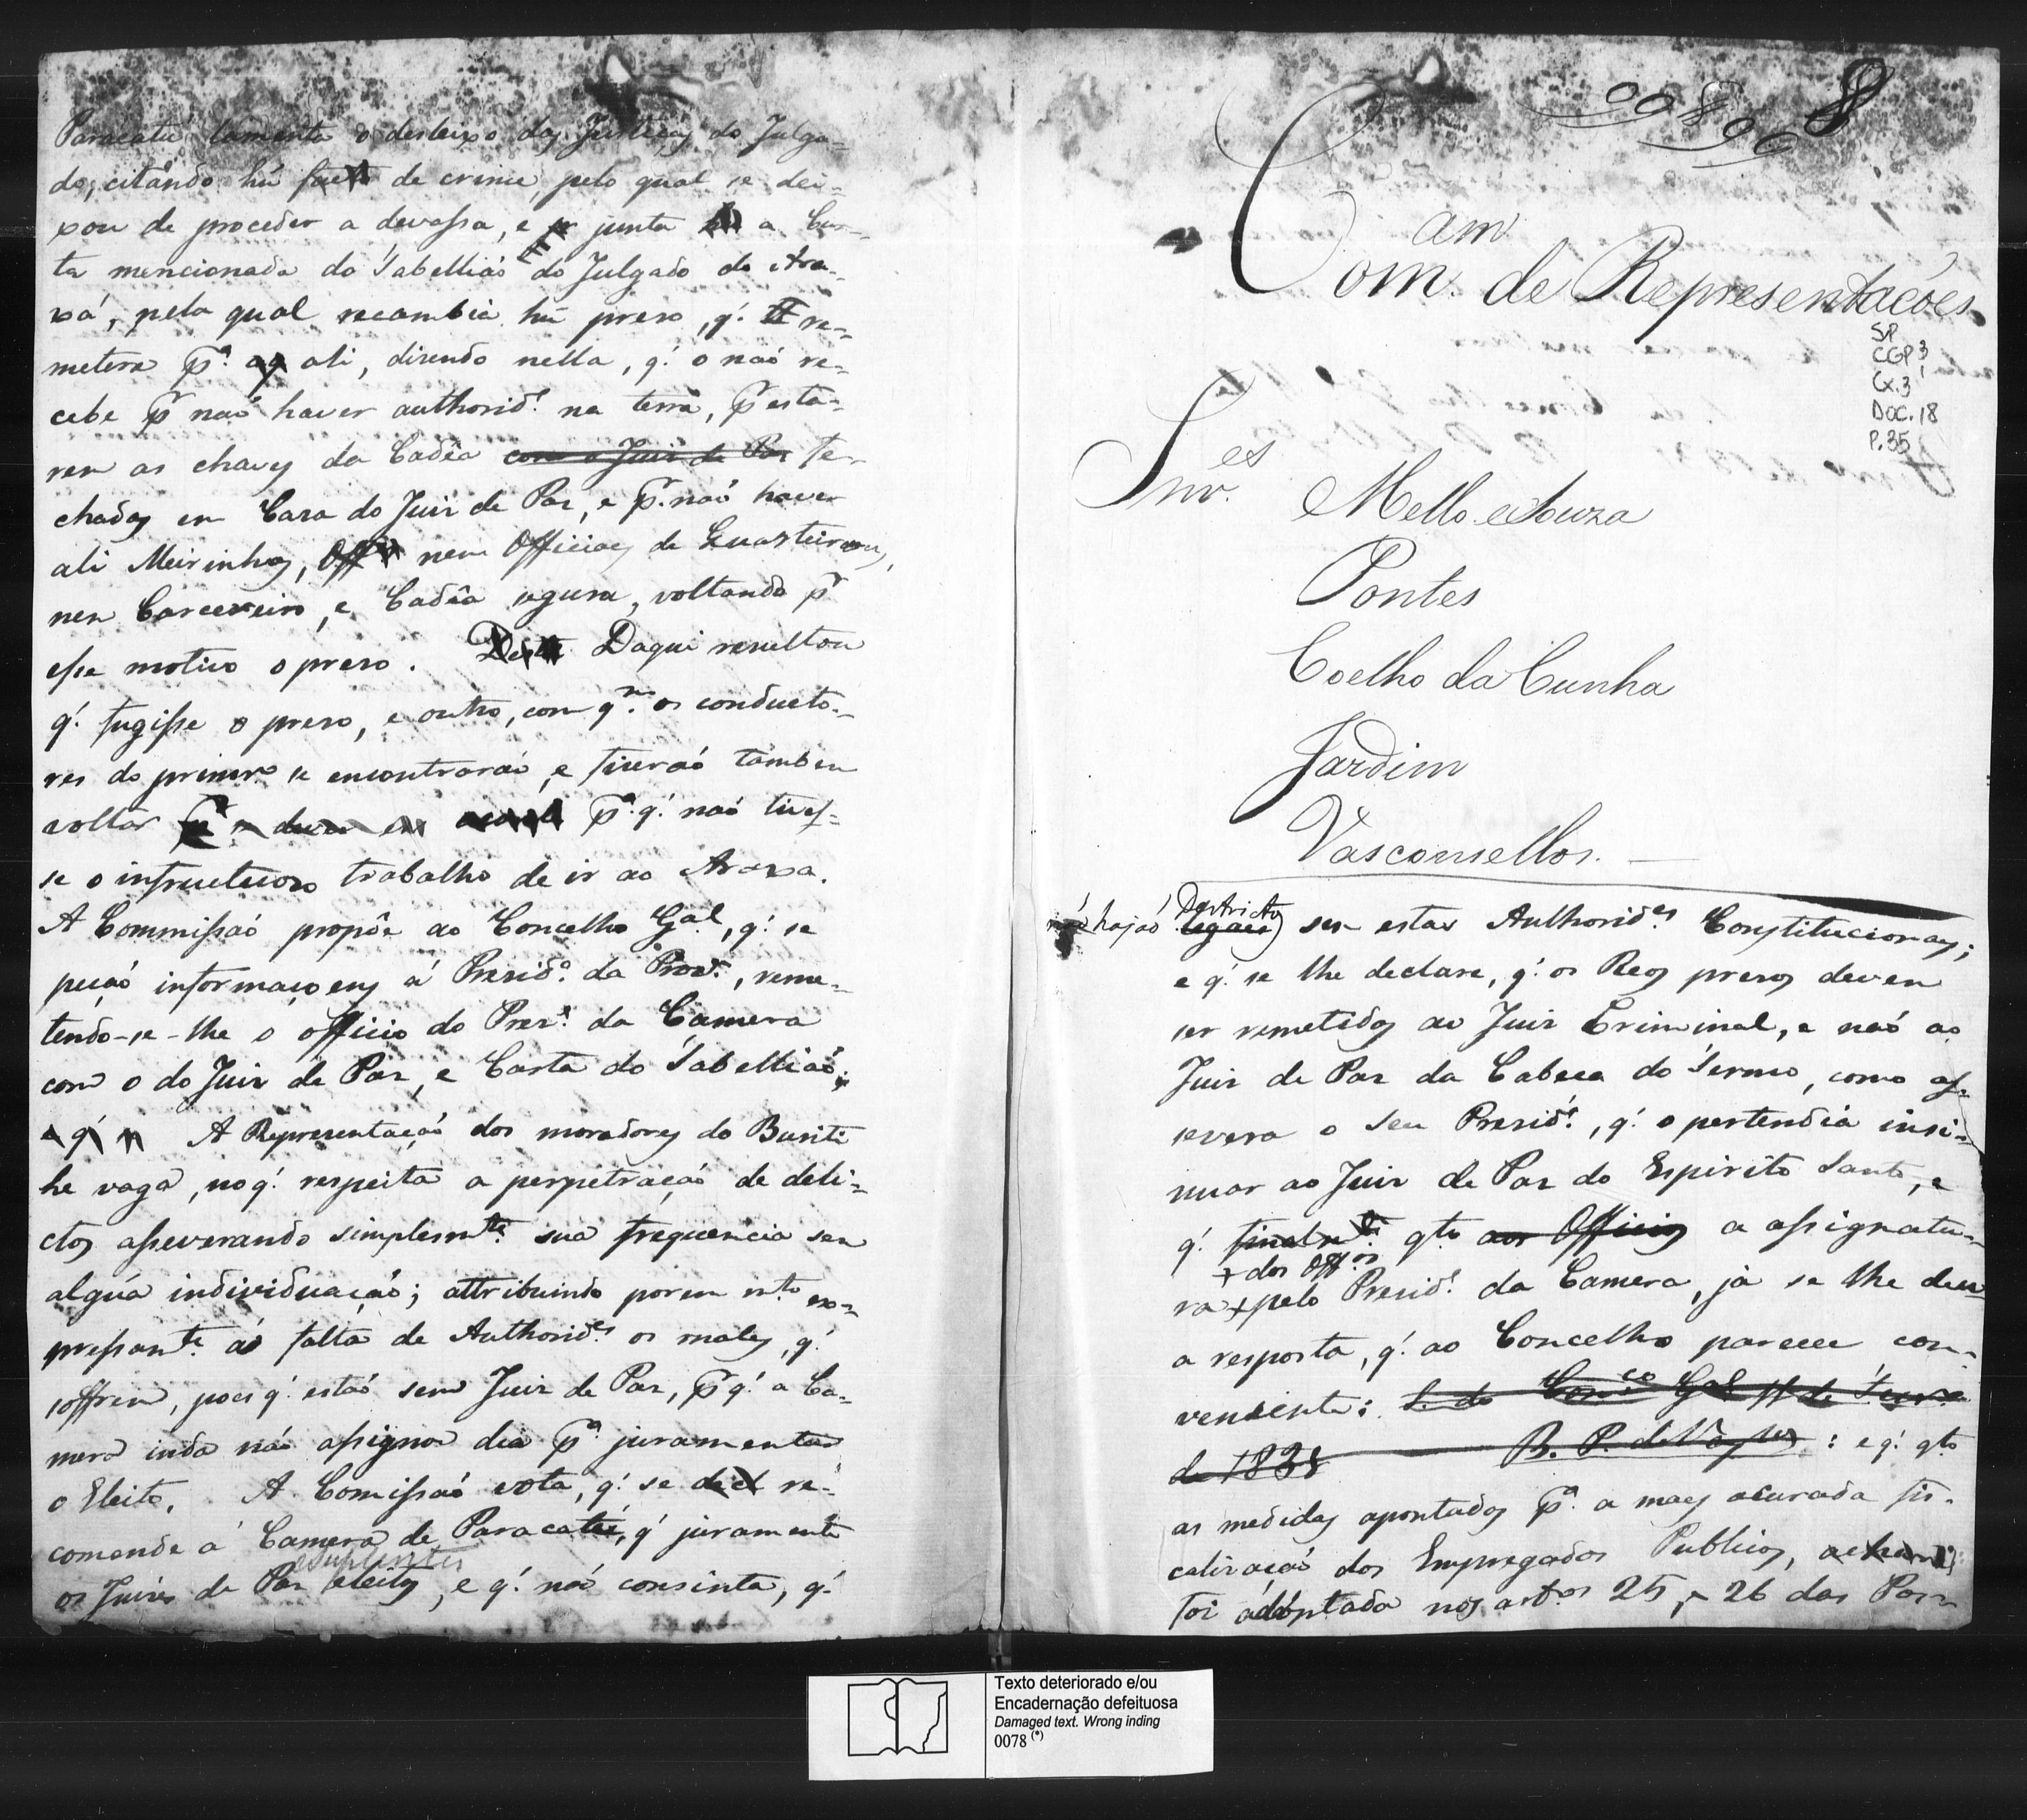 Paracatú lamenta o desleixo das Justiças do Julga-
do, citando hú facto de crime, pelo qual se dei-
xou de proceder a devassa, e junta a Car-
ta mencionada do Tabelliaó do Julgado do Ara-
xá, pela qual recambia hú preso, q'. re-
metera p.ª ali, disendo nella, q'. o naó re-
cebe p.r naó haver authorid.e na terra, p.r esta-
rem as chaves da Cadêa com o Juiz de Paz fe-
chadas em Casa do Juiz de Paz, e p.r naó haver
ali Meirinhos, Off nem Officiaes de Quarteiroens,
nem Carcereiro, e Cadêa segura, voltando p.r
esse motivo o preso. Daqui resultou
q'. fugisse o preso, e outro, com q.m os conducto-
res do primrº se encontraraó, e fizeraó tambem
voltar p.ª q'. naó tives-
se o infructuoso trabalho de ir ao Araxa.
A Commissaó propôe ao Concelho G.al, q'. se
peçaó informaçoens á Presid.ª da Prov.ª, reme-
tendo-se-lhe o officio do Pres.e da Camera
com o do Juiz de Paz, e Carta do Tabelliaó;
e q' A Representaçaó dos moradores do Buriti
he vaga, no q'. respeita a perpetraçaó de deli-
ctos asseverando simplesm.te sua frequencia sem
algúa individuaçaó; attribuindo porem m.to ex-
pressam.te á falta de Authorid.es os males, q'.
soffrem, pois q'. estaó sem Juiz de Paz, p.r q'. a Ca-
mera inda naó assignou dia p.ª juramentar
o Eleito. A Comissaó vota, q'. se re-
comende á Camera de Paracatú, q' juramente
e suplentes
os Juizes de Paz eleitos, e q'. naó consinta, q'.
00800
0090
8
am
Com. de Representaçóes
SP
CGP 3
Cx.3
Doc. 18
P.35
Snr.es
Mello e Souza
Pontes
Coelho da Cunha
Jardim
Vasconsellos.
Destrictos
hajaó legaes) sem estas Authorid.es Constitucionaes;
e q'. se lhe declare, q'. os Reos presos devem
ser remetidos ao Juiz Criminal, e naó ao
Juiz de Paz da Cabeça do Termo, como as-
severa o seu Presid.e, q'. o pertendia insi-
nuar ao Juiz de Paz do Espirito Santo, e
q'. finalm.te q.to aos Officios a assignatu-
+ dos Off.os
ra + pelo Presid.e da Camera, já se lhe deu
a resposta, q'. ao Concelho parece con-
veniente: S. do Con.co G.al
de 183 B. P. de Vas.los : e q'. q.to
as medidas apontadas p.ª a mais acurada fis-
calisaçaó dos Empregados Publicos,
foi adóptada nos art.os 25, e 26 das Pos-
Texto deteriorado e/ou
Encadernação defeituosa
Damaged text. Wrong inding
0078 (*)